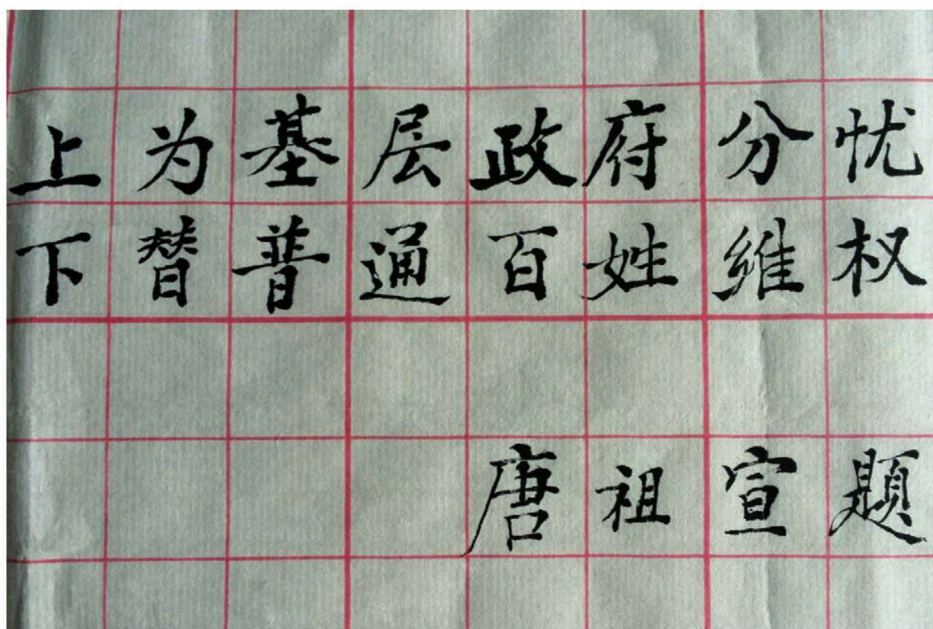 上为基层政府分忧
下替普通百姓维权
唐祖宣题